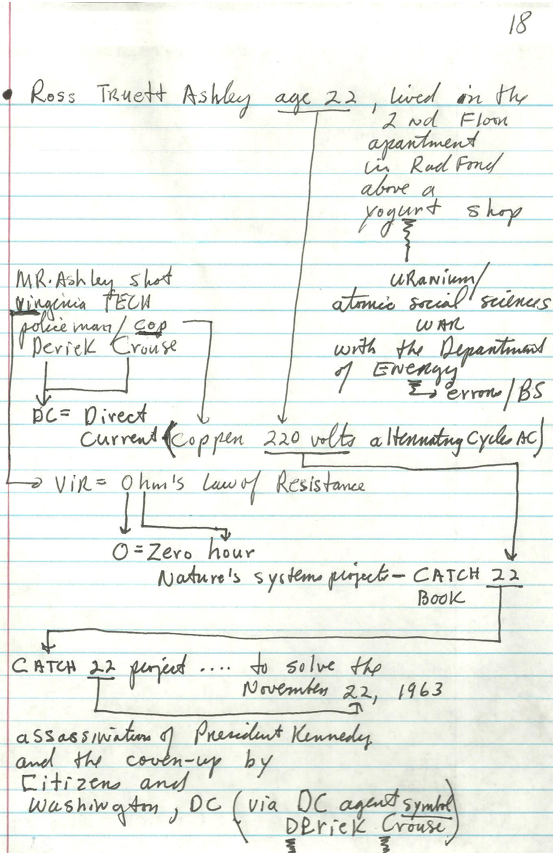 18
• Ross Truett Ashley age 22, lived in the
2nd Floor
apartment
in Radford
above a
yogurt shop
uranium/
atomic social sciences
WAR
with the Department
of Energy
→ errors/BS
MR. Ashley shot
Virginia TECH
police man/cop
Derick Crouse
DC = Direct
Current (Copper 220 volts alternating Cycles AC)
VIR = Ohm's Law of Resistance
O = Zero hour
Nature's systems project - CATCH 22
BOOK
CATCH 22 project .... to solve the
November 22, 1963
assassination of President Kennedy
and the cover-up by
Citizens and
Washington, DC (via DC agent symbol
DErick Crouse)